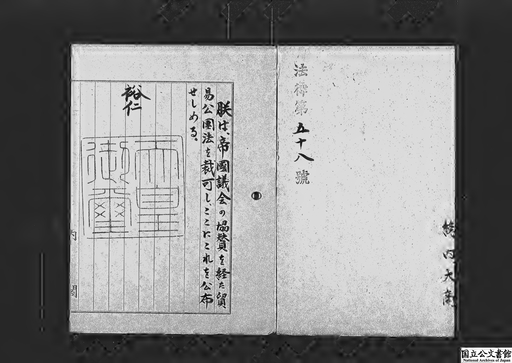 法律第五十八號
朕は、帝國議会の協賛を経た貿
易公團法を裁可し、ここにこれを公布
せしめる。
裕仁
天皇
御璽
内閣
国立公文書館
National Archives of Japan